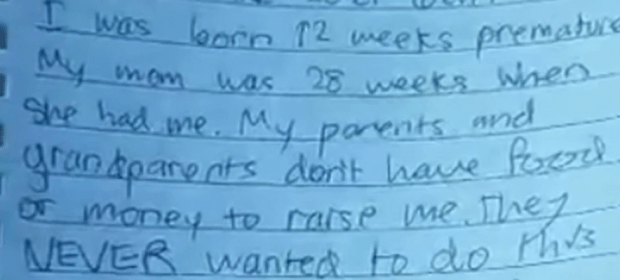 I was born 12 weeks premature
My mom was 28 weeks when
she had me. My parents and
grandparents don't have food
or money to raise me. They
NEVER wanted to do this